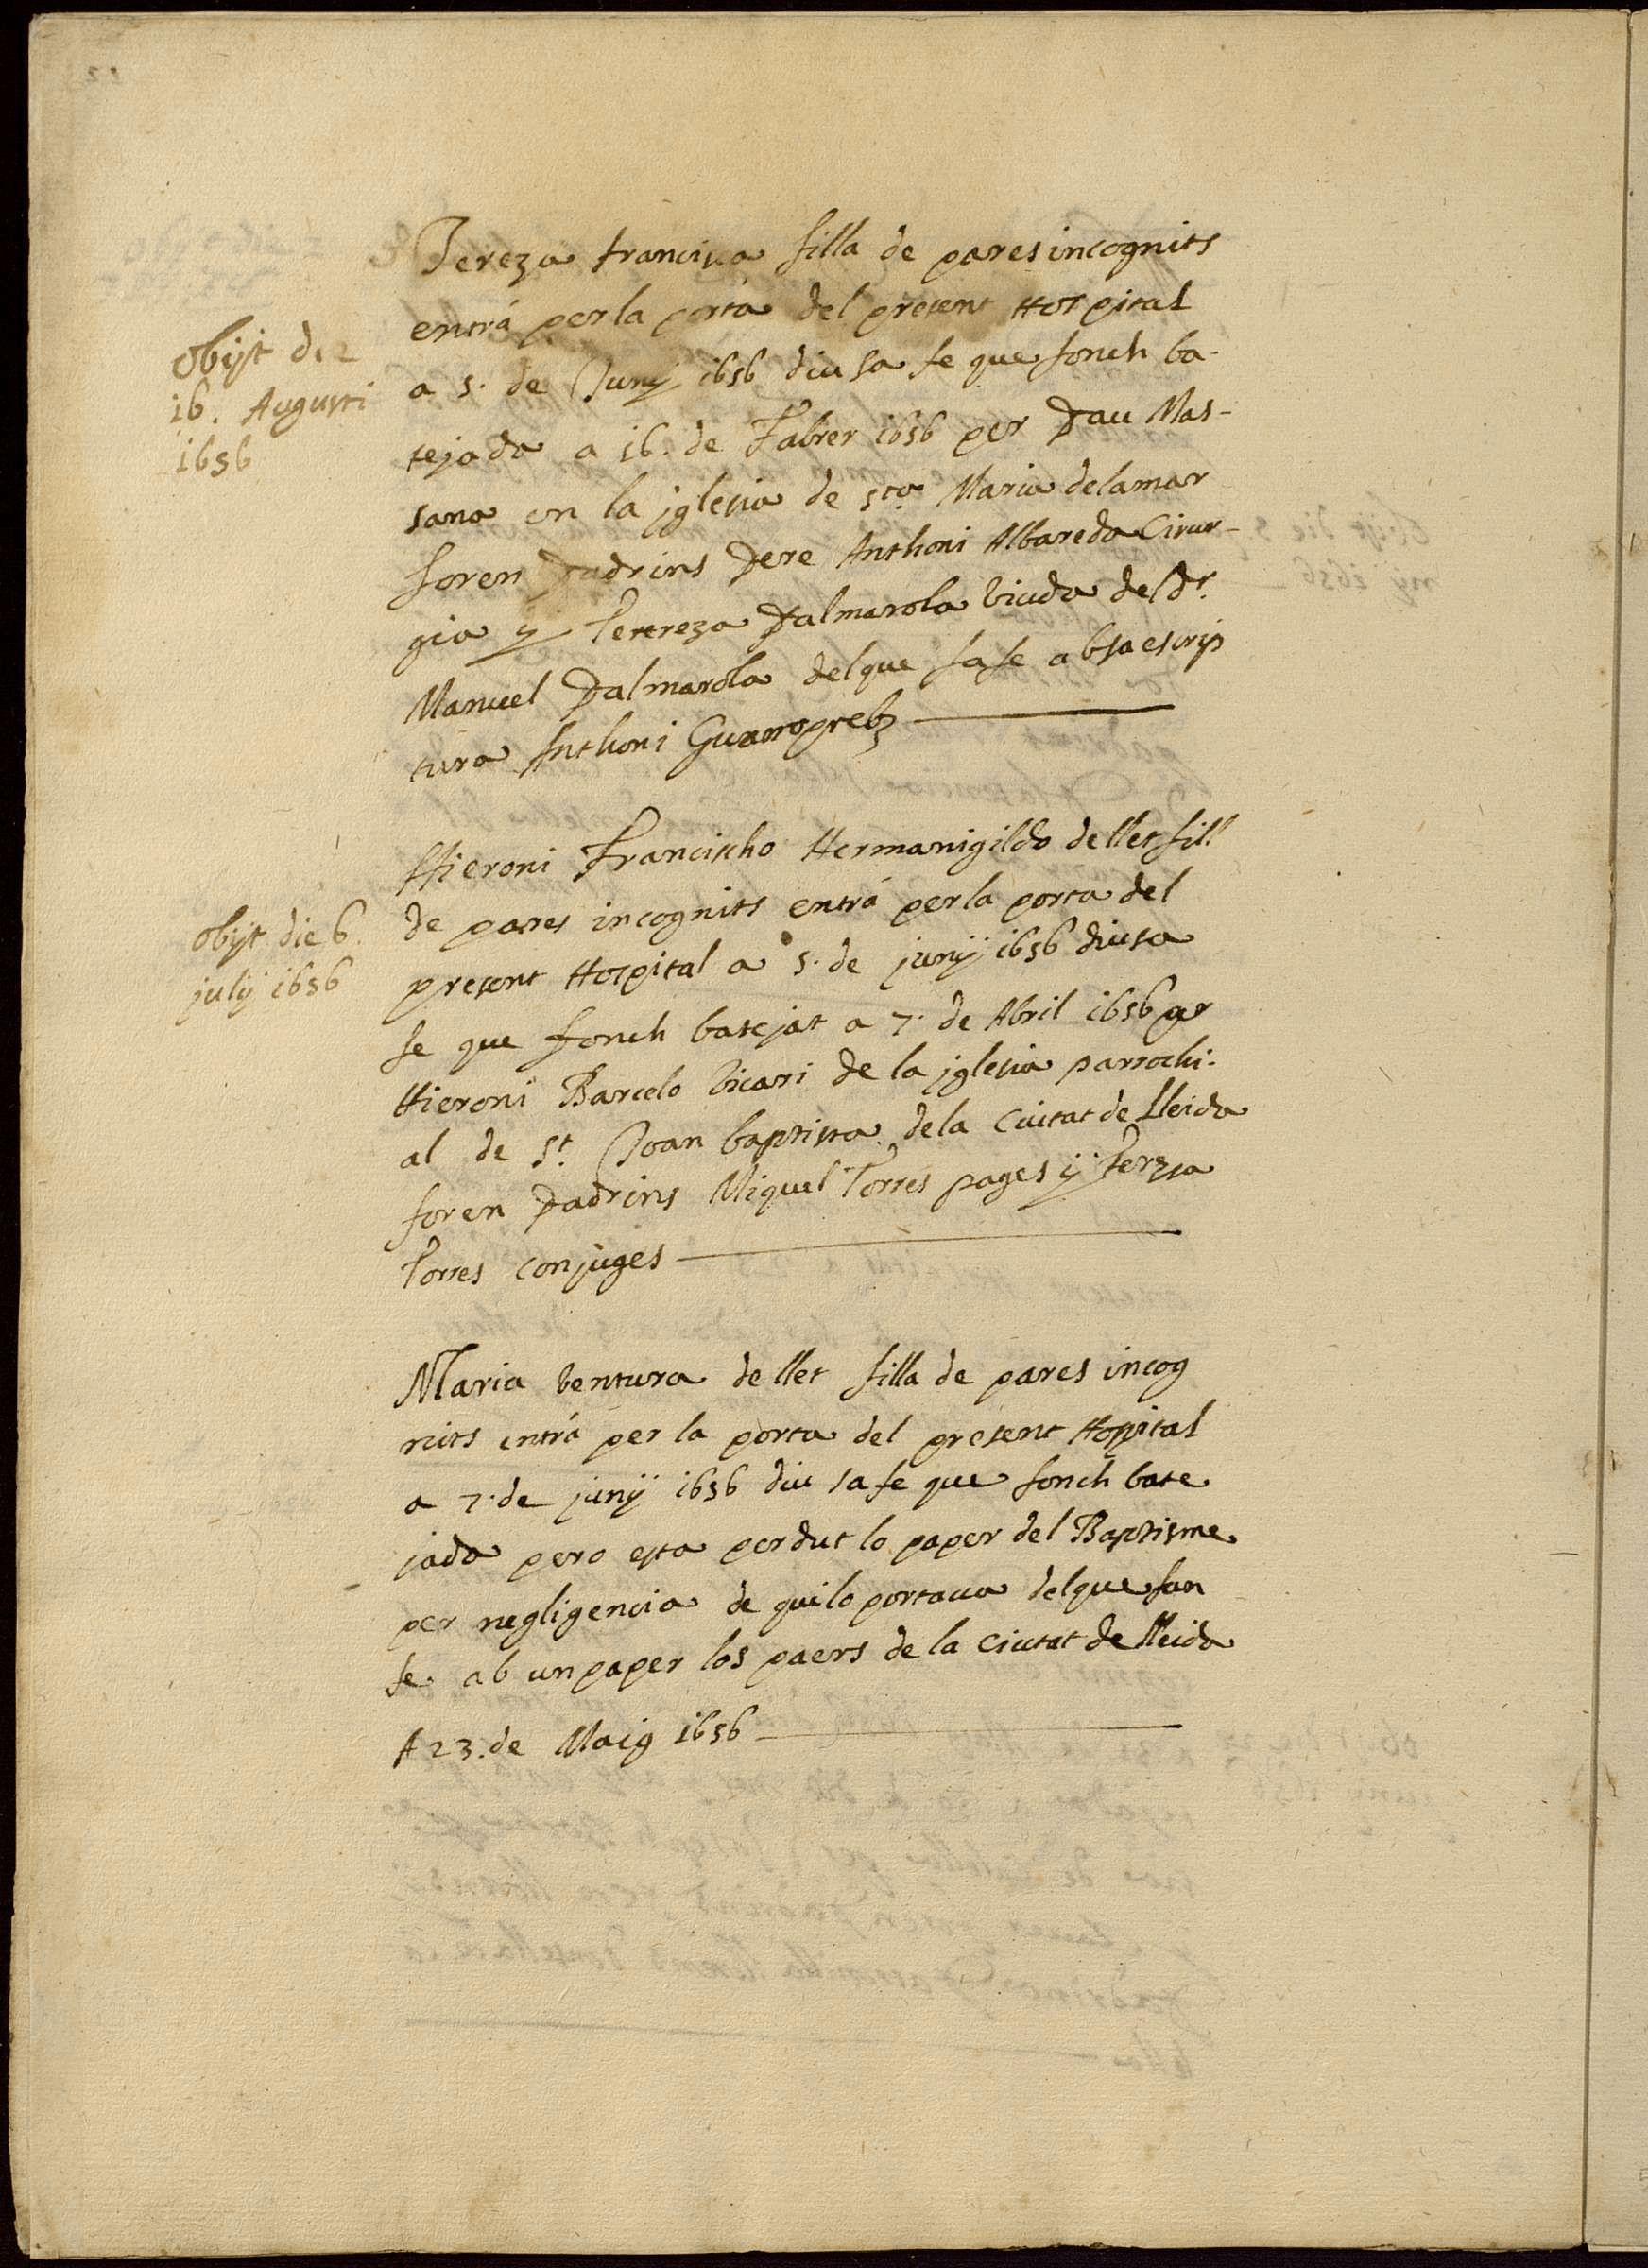 Tereza francisca filla de pares incognits
entrá per la porta del present Hospital
a 5. de Juny 1656 diu sa fe que fonch ba-
tejada a 16. de Fabrer 1656 per Pau Mas-
sana en la jglesia de sta. Maria de la mar
foren Padrins Pere Anthoni Albareda Cirur-
gia y Terereza Palmarola viuda de Dr.
Manuel Palmarola del que fa fe ab sa escrip
tura Anthoni
obijt die
16. Augusti
1656
Hieroni Francischo Hermanigildo de llet fill
de pares incognits entrá per la porta del
present Hospital a 5. de junÿ 1656 diu sa
fe que fonch batejat a 7. de Abril 1656 per
Hieroni Barcelo vicari de la jglesia parrochi-
al de St. Joan baptista de la Ciutat de Lleida
foren Padrins Miquel Torres pages y Terza
Torres conjuges
obijt die 6.
julÿ 1656
Maria ventura de llet filla de pares incog
nits entrá per la porta del present Hospital
a 7. de junÿ 1656 diu sa fe que fonch bate
jada pero esta perdut lo paper del Baptisme
per negligencia de qui lo portava del que fan
fe ab un paper los paers de la Ciutat de lleida
A 23. de Maig 1656